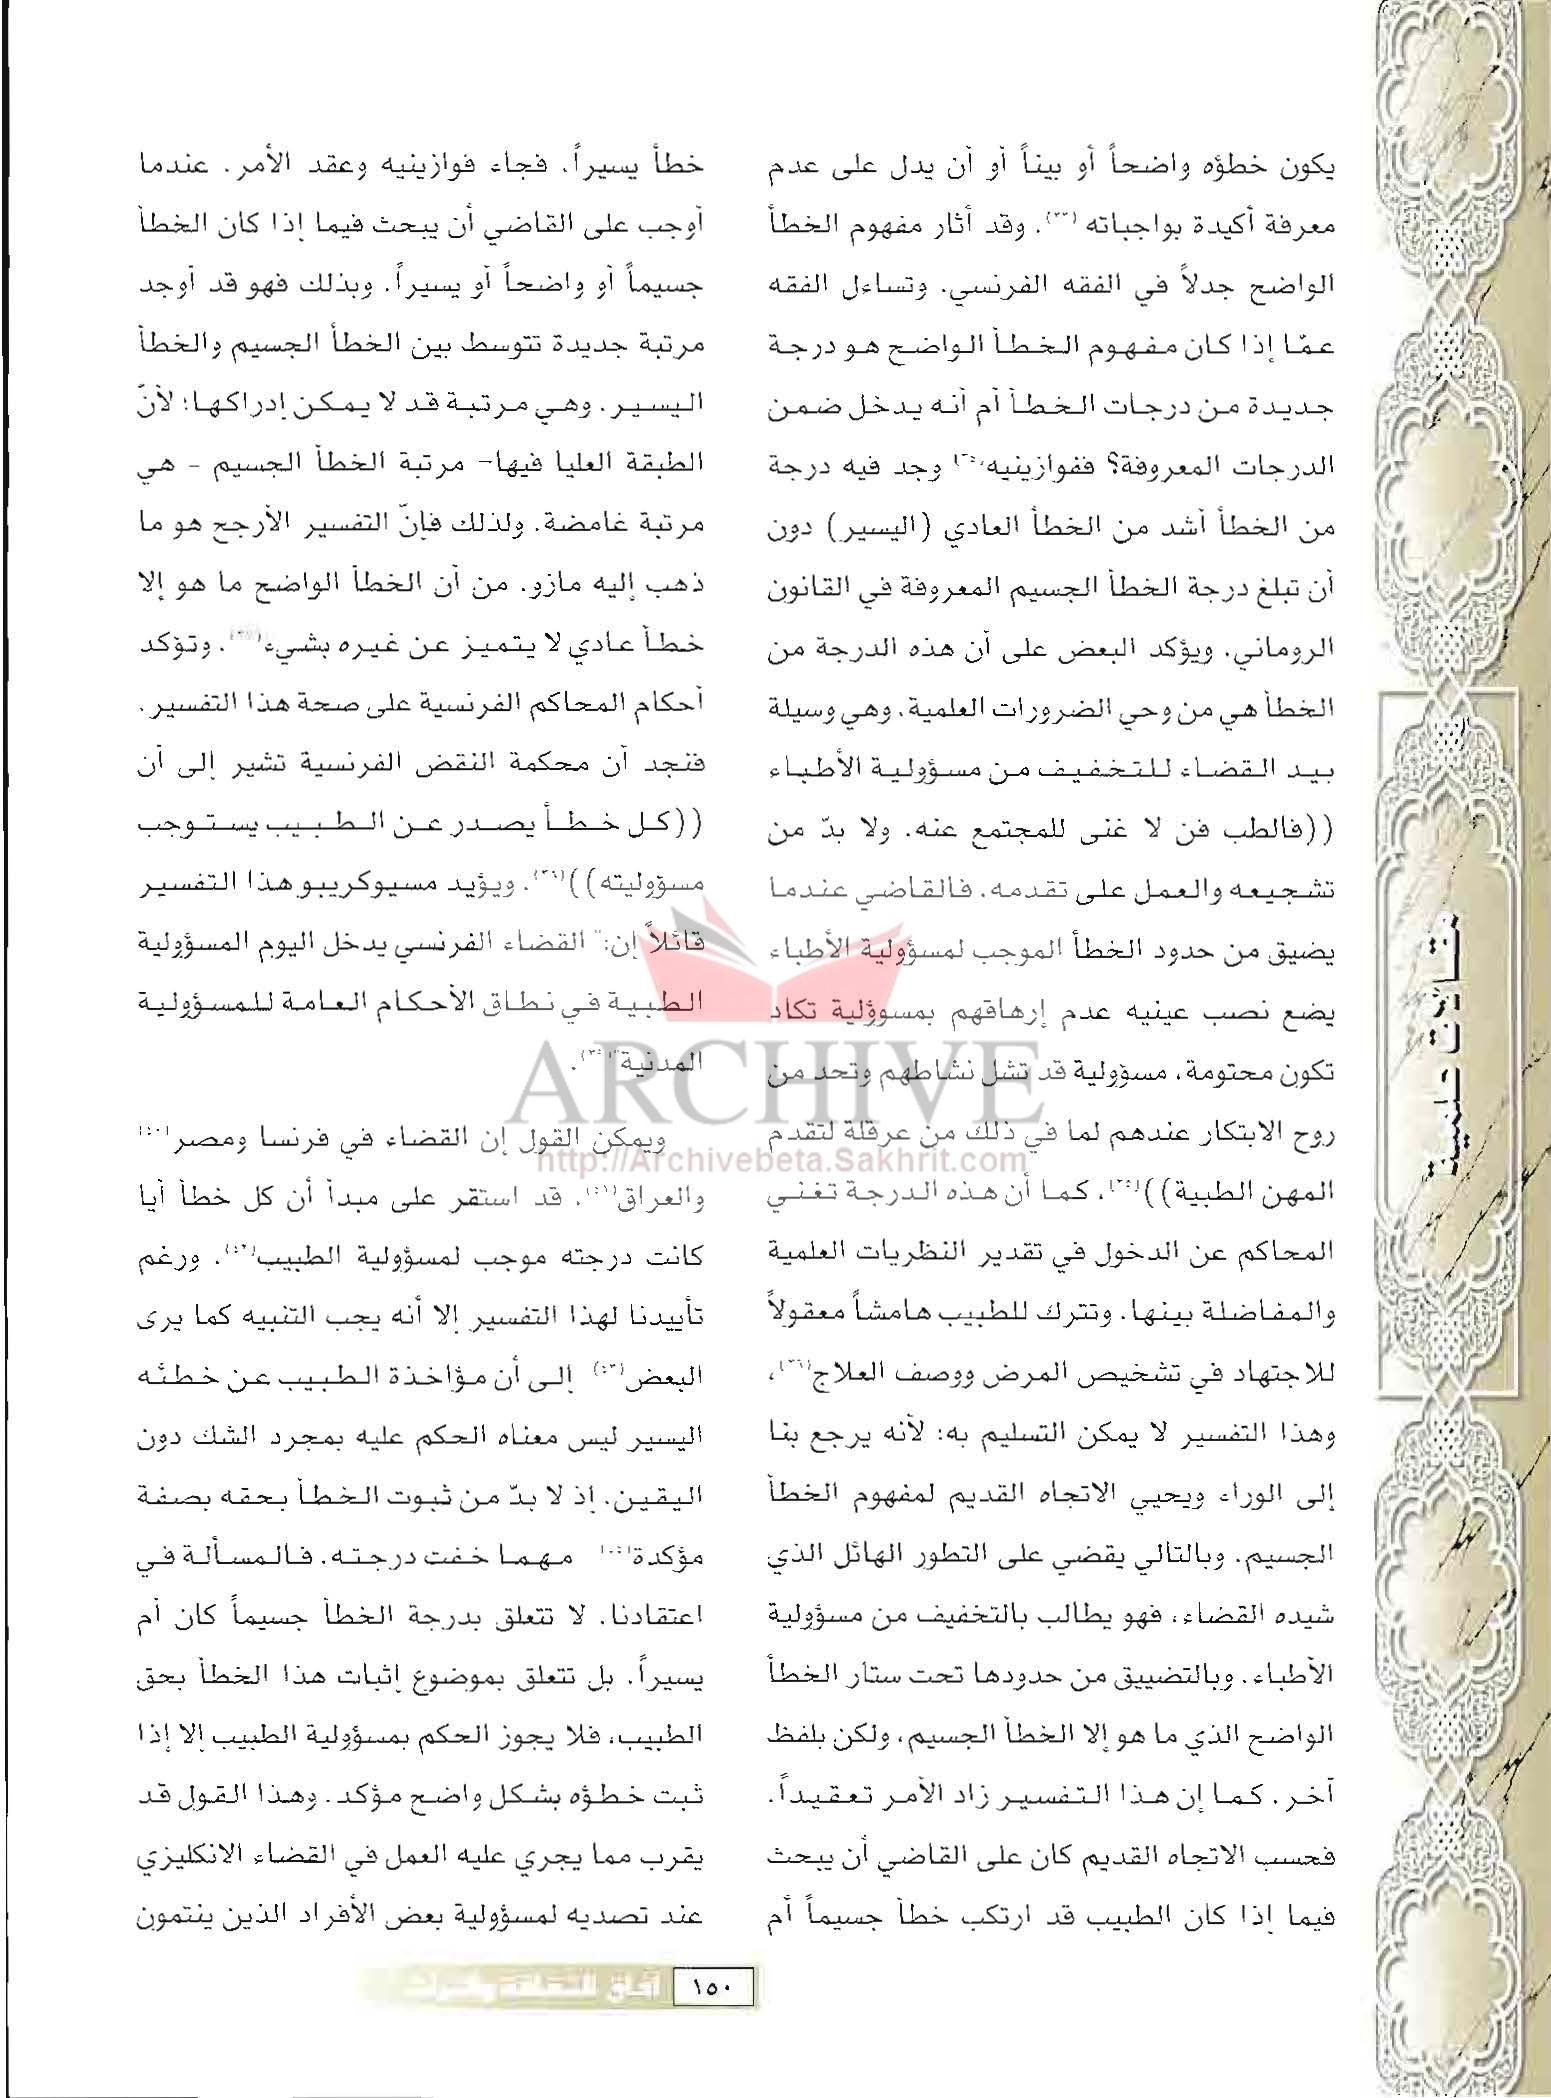 يكون خطؤه واضحاً أو بيناً أو أن يدل على عدم
معرفة أكيدة بواجباته (٣٣). وقد أثار مفهوم الخطأ
الواضح جدلاً في الفقه الفرنسي. وتساءل الفقه
عمّا إذا كان مفهوم الخطأ الواضح هو درجة
جديدة من درجات الخطأ أم أنه يدخل ضمن
الدرجات المعروفة؟ ففوازينيه وجد فيه درجة
من الخطأ أشد من الخطأ العادي (اليسير) دون
أن تبلغ درجة الخطأ الجسيم المعروفة في القانون
الروماني. ويؤكد البعض على أن هذه الدرجة من
الخطأ هي من وحي الضرورات العلمية. وهي وسيلة
بيد القضاء للتخفيف من مسؤولية الأطباء
((فالطب فن لا غنى للمجتمع عنه. ولا بدّ من
تشجيعه والعمل على تقدمه. فالقاضي عندما
يضيق من حدود الخطأ الموجب لمسؤولية الأطباء
يضع نصب عينيه عدم إرهاقهم بمسوؤلية تكاد
تكون محتومة، مسؤولية قد تشل نشاطهم وتحد من
روح الابتكار عندهم لما في ذلك من عرقلة لتقدم
المهن الطبية))(٣٥)، كما أن هذه الدرجة تغني
المحاكم عن الدخول في تقدير النظريات العلمية
والمفاضلة بينها. وتترك للطبيب هامشاً معقولاً
للاجتهاد في تشخيص المرض ووصف العلاج(٣٦)،
وهذا التفسير لا يمكن التسليم به: لأنه يرجع بنا
إلى الوراء ويحيي الاتجاه القديم لمفهوم الخطأ
الجسيم. وبالتالي يقضي على التطور الهائل الذي
شيده القضاء، فهو يطالب بالتخفيف من مسؤولية
الأطباء. وبالتضييق من حدودها تحت ستار الخطأ
الواضح الذي ما هو إلا الخطأ الجسيم، ولكن بلفظ
آخر. كما إن هذا التفسير زاد الأمر تعقيداً.
فحسب الاتجاه القديم كان على القاضي أن يبحث
فيما إذا كان الطبيب قد ارتكب خطأ جسيماً أم
خطأ يسيراً. فجاء فوازينيه وعقد الأمر. عندما
أوجب على القاضي أن يبحث فيما إذا كان الخطأ
جسيماً أو واضحاً أو يسيراً. وبذلك فهو قد أوجد
مرتبة جديدة تتوسط بين الخطأ الجسيم والخطأ
اليسير. وهي مرتبة قد لا يمكن إدراكها؛ لأنّ
الطبقة العليا فيها- مرتبة الخطأ الجسيم - هي
مرتبة غامضة. ولذلك فإنّ التفسير الأرجح هو ما
ذهب إليه مازو. من أن الخطأ الواضح ما هو إلا
خطأ عادي لا يتميز عن غيره بشيء. وتؤكد
أحكام المحاكم الفرنسية على صحة هذا التفسير.
فنجد أن محكمة النقض الفرنسية تشير إلى أن
((كل خطأ يصدر عن الطبيب يستوجب
مسؤوليته)). ويؤيد مسيوكريبو هذا التفسير
قائلاً إن:" القضاء الفرنسي يدخل اليوم المسؤولية
الطبية في نطاق الأحكام العامة للمسؤولية
المدنية".
ويمكن القول إن القضاء في فرنسا ومصر
والعراق(٤١). قد استقر على مبدأ أن كل خطأ أيا
كانت درجته موجب لمسؤولية الطبيب(٤٢). ورغم
تأييدنا لهذا التفسير إلا أنه يجب التنبيه كما يرى
البعض(٤٣) إلى أن مؤاخذة الطبيب عن خطئه
اليسير ليس معناه الحكم عليه بمجرد الشك دون
اليقين. إذ لا بدّ من ثبوت الخطأ بحقه بصفة
مؤكدة مهما خفت درجته. فالمسألة في
اعتقادنا. لا تتعلق بدرجة الخطأ جسيماً كان أم
يسيراً. بل تتعلق بموضوع إثبات هذا الخطأ بحق
الطبيب، فلا يجوز الحكم بمسؤولية الطبيب إلا إذا
ثبت خطؤه بشكل واضح مؤكد. وهذا القول قد
يقرب مما يجري عليه العمل في القضاء الانكليزي
عند تصديه لمسؤولية بعض الأفراد الذين ينتمون
مقالات علمية
ARCHIVE
http://Archivebeta.Sakhrit.com
١٥٠
آفاق الثقافة والتراث